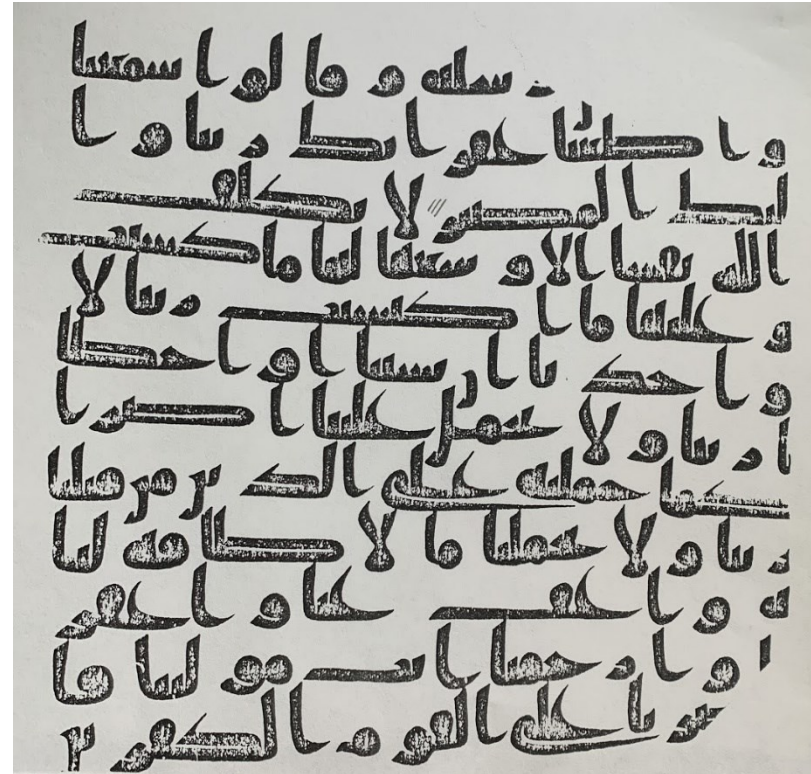 رسله و قالوا سمعنا
و اطعنا غفرانك ربنا و ا
ليك المصير لا يكلف
الله نفسا الا وسعها لها ما كسبت
و عليها ما اكتسبت ربنا لا
تواخذنا ان نسينا او اخطا
نا ربنا و لا تحمل علينا اصرا
كما حملته على الذين من قبلنا
ربنا و لا تحملنا ما لا طاقه لنا
به و اعف عنا و اغفر
لنا و ارحمنا انت مولنا فا
نصرنا على القوم الكفرين